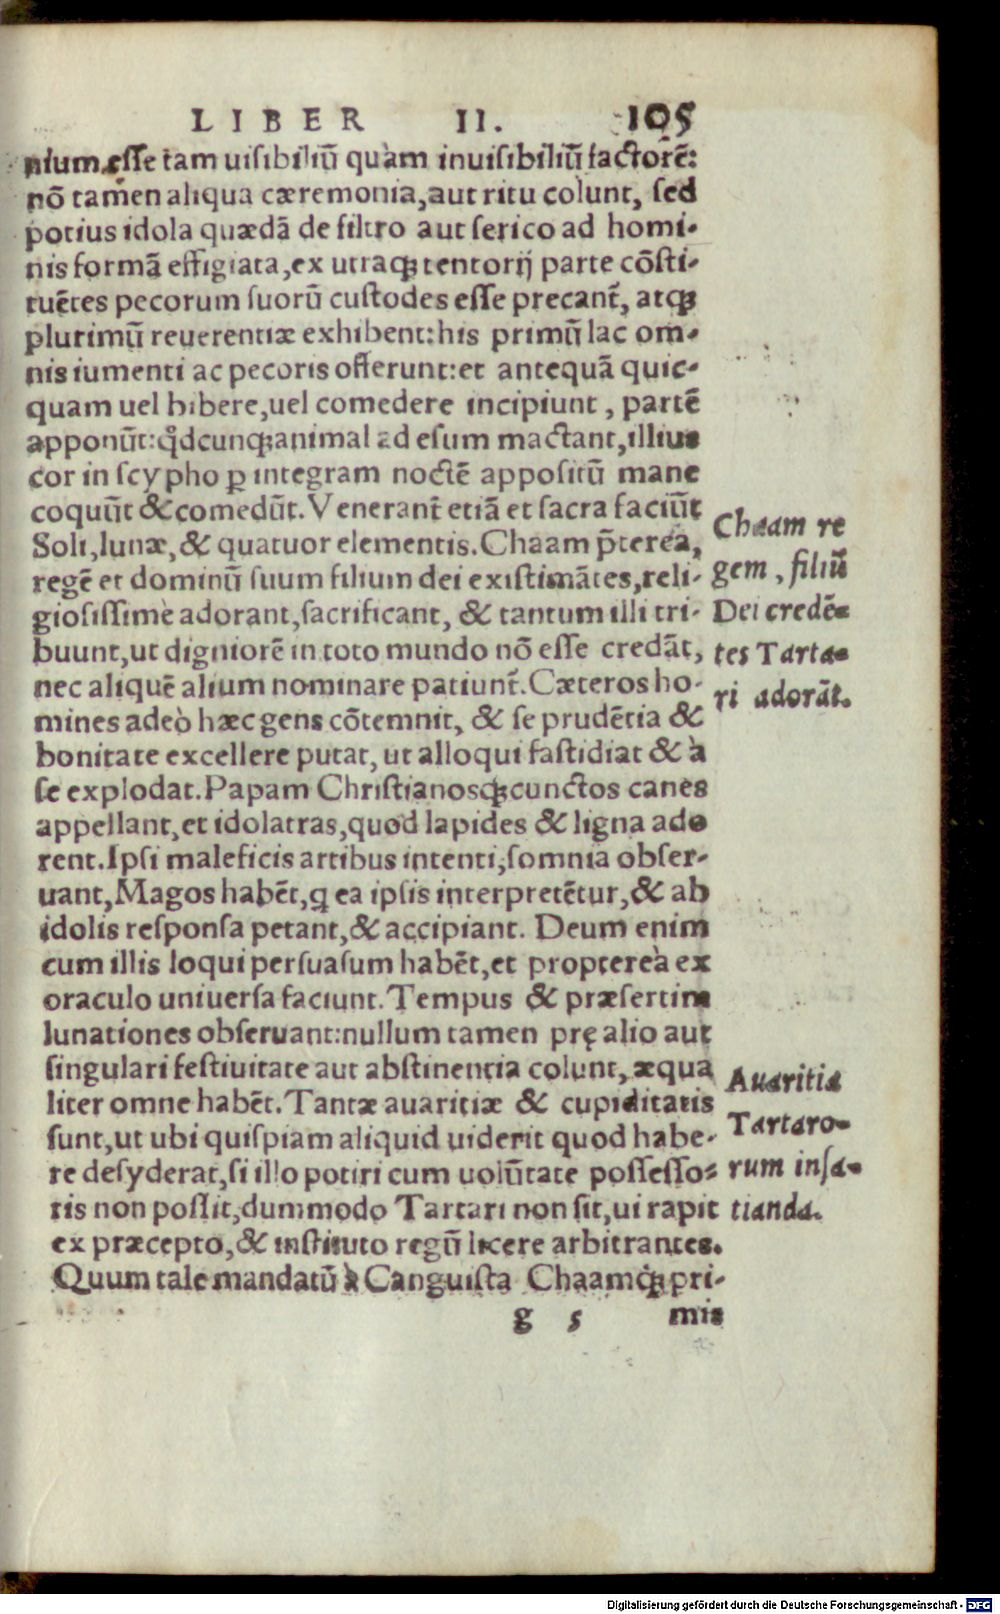 LIBER II. 105
nium esse tam uisibiliũ quàm inuisibiliũ factorẽ:
nõ tamen aliqua cæremonia, aut ritu colunt, sed
potius idola quædã de filtro aut serico ad homi-
nis formã effigiata, ex utraqꝫ tentorij parte cõsti-
tuẽtes pecorum suorũ custodes esse precant̃, atqꝫ
plurimũ reuerentiæ exhibent: his primũ lac om-
nis iumenti ac pecoris offerunt: et antequã quic-
quam uel bibere, uel comedere incipiunt, partẽ
apponũt: qđcunqꝫ animal ad esum mactant, illius
cor in scypho ꝑ integram noctẽ appositũ mane
coquũt & comedũt. Venerant̃ etiã et sacra faciũt
Soli, lunæ, & quatuor elementis. Chaam p̃terea,
regẽ et dominũ suum filium dei existimãtes, reli-
giosissimè adorant, sacrificant, & tantum illi tri-
buunt, ut digniorẽ in toto mundo nõ esse credãt,
nec aliquẽ alium nominare patiunt̃. Cæteros ho-
mines adeò hæc gens cõtemnit, & se prudẽtia &
bonitate excellere putat, ut alloqui fastidiat & à
se explodat. Papam Christianosqꝫ cunctos canes
appellant, et idolatras, quod lapides & ligna ado
rent. Ipsi maleficis artibus intenti, somnia obser-
uant, Magos habẽt, q ea ipsis interpretẽtur, & ab
idolis responsa petant, & accipiant. Deum enim
cum illis loqui persuasum habẽt, et proptereà ex
oraculo uniuersa faciunt. Tempus & præsertim
lunationes obseruant: nullum tamen prę alio aut
singulari festiuitate aut abstinentia colunt, æqua
liter omne habẽt. Tantæ auaritiæ & cupiditatis
sunt, ut ubi quispiam aliquid uiderit quod habe-
re desyderat, si illo potiri cum uolũtate possesso-
ris non possit, dummodo Tartari non sit, ui rapit
ex præcepto, & instituto regũ licere arbitrantes.
Quum tale mandatũ à Canguista Chaamqꝫ pri-
g 5 mis
Chaam re
gem, filiũ
Dei credẽ-
tes Tarta-
ri adorãt.
Auaritia
Tartaro-
rum insa-
tianda.
Digitalisierung gefördert durch die Deutsche Forschungsgemeinschaft - DFG